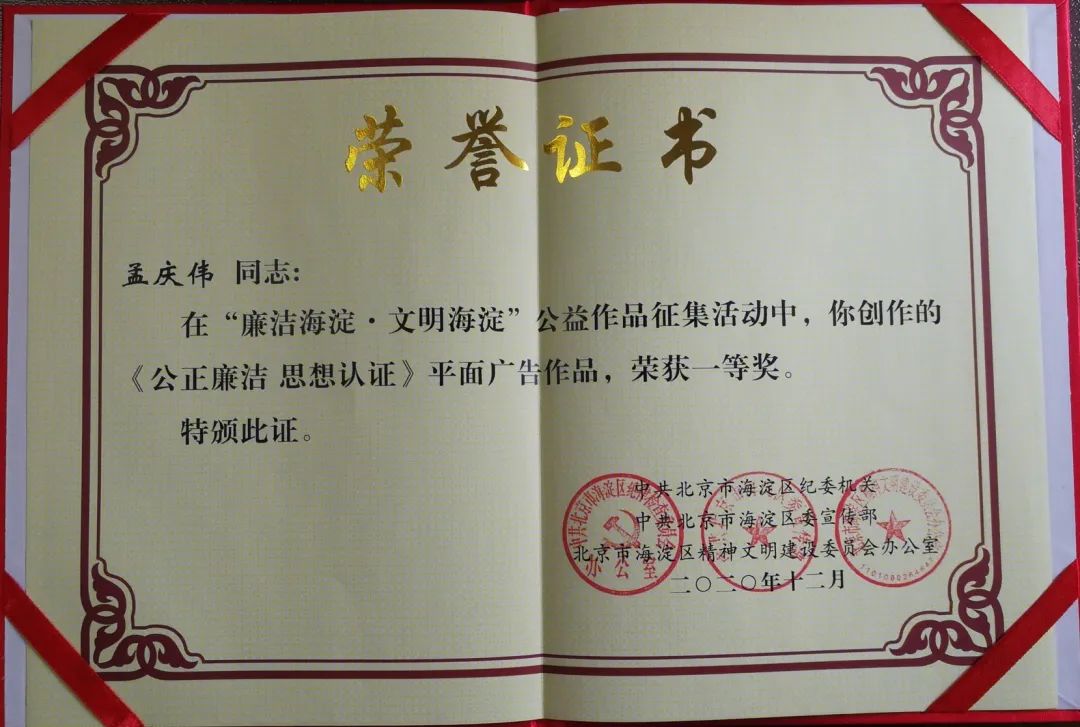 荣誉证书
孟庆伟 同志：
在“廉洁海淀·文明海淀”公益作品征集活动中，你创作的
《公正廉洁 思想认证》平面广告作品，荣获一等奖。
特颁此证。
中共北京市海淀区纪委机关
中共北京市海淀区委宣传部
北京市海淀区精神文明建设委员会办公室
二〇二〇年十二月
办公室